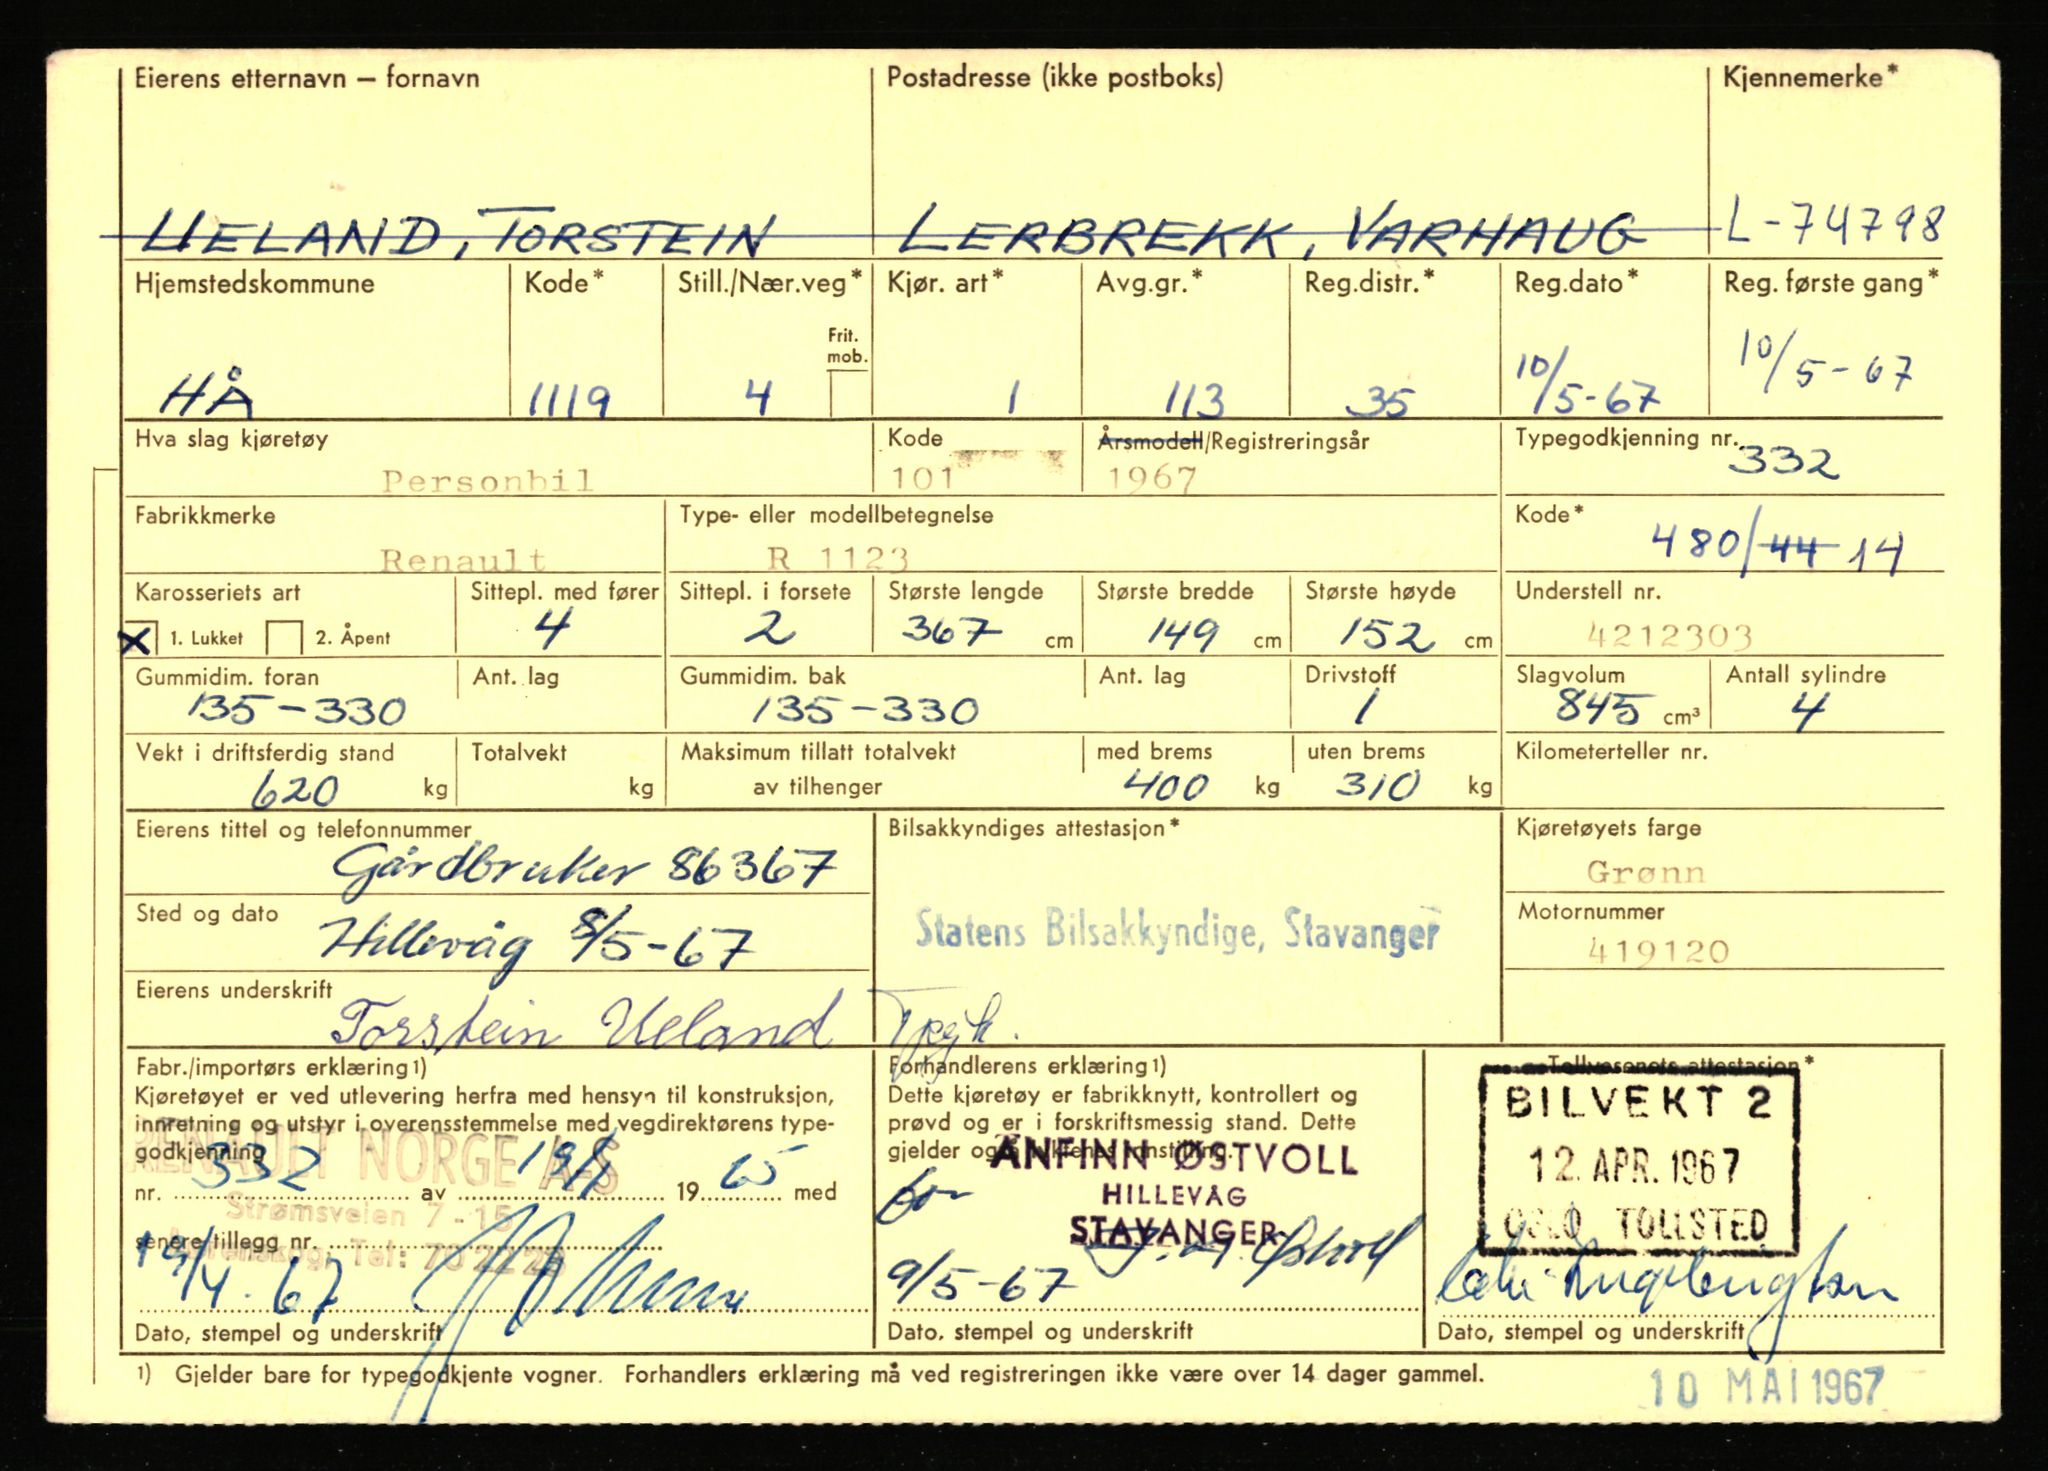 Eierens etternavn – fornavn Postadresse (ikke postboks) Kjennemerke*
UELAND, TORSTEIN LERBREKK, VARHAUG L-74798
Hjemstedskommune Kode* Still./Nær.veg* Kjør. art* Avg.gr.* Reg.distr.* Reg.dato* Reg. første gang*
Frit. mob.
HÅ 1119 4 1 113 35 10/5-67 10/5-67
Hva slag kjøretøy Kode Årsmodell/Registreringsår Typegodkjenning nr.
Personbil 101 1967 332
Fabrikkmerke Type- eller modellbetegnelse Kode*
Renault R 1123 480/44 14
Karosseriets art Sittepl. med fører Sittepl. i forsete Største lengde Største bredde Største høyde Understell nr.
X 1. Lukket 2. Åpent 4 2 367 cm 149 cm 152 cm 4212303
Gummidim. foran Ant. lag Gummidim. bak Ant. lag Drivstoff Slagvolum Antall sylindre
135-330 135-330 1 845 cm³ 4
Vekt i driftsferdig stand Totalvekt Maksimum tillatt totalvekt med brems uten brems Kilometerteller nr.
620 kg kg av tilhenger 400 kg 310 kg
Eierens tittel og telefonnummer Bilsakkyndiges attestasjon* Kjøretøyets farge
Gårdbruker 86367 Grønn
Sted og dato Motornummer
Hillevåg 8/5-67 Statens Bilsakkyndige, Stavanger 419120
Eierens underskrift
Torstein Ueland
Fabr./importørs erklæring 1) Forhandlerens erklæring 1) Tollvesenets attestasjon*
Kjøretøyet er ved utlevering herfra med hensyn til konstruksjon, innretning og utstyr i overensstemmelse med vegdirektørens typegodkjenning
nr. 332 av 19/1 1965 med
senere tillegg nr.
RENAULT NORGE A-S
Strømsveien 7-15
Tel: 702223
19/4-67
Dato, stempel og underskrift
Dette kjøretøy er fabrikknytt, kontrollert og
prøvd og er i forskriftsmessig stand. Dette
gjelder også
ANFINN ØSTVOLL
HILLEVÅG
STAVANGER
for
9/5-67
Dato, stempel og underskrift
BILVEKT 2
12. APR. 1967
OSLO TOLLSTED
Dato, stempel og underskrift
1) Gjelder bare for typegodkjente vogner. Forhandlers erklæring må ved registreringen ikke være over 14 dager gammel.
10 MAI 1967